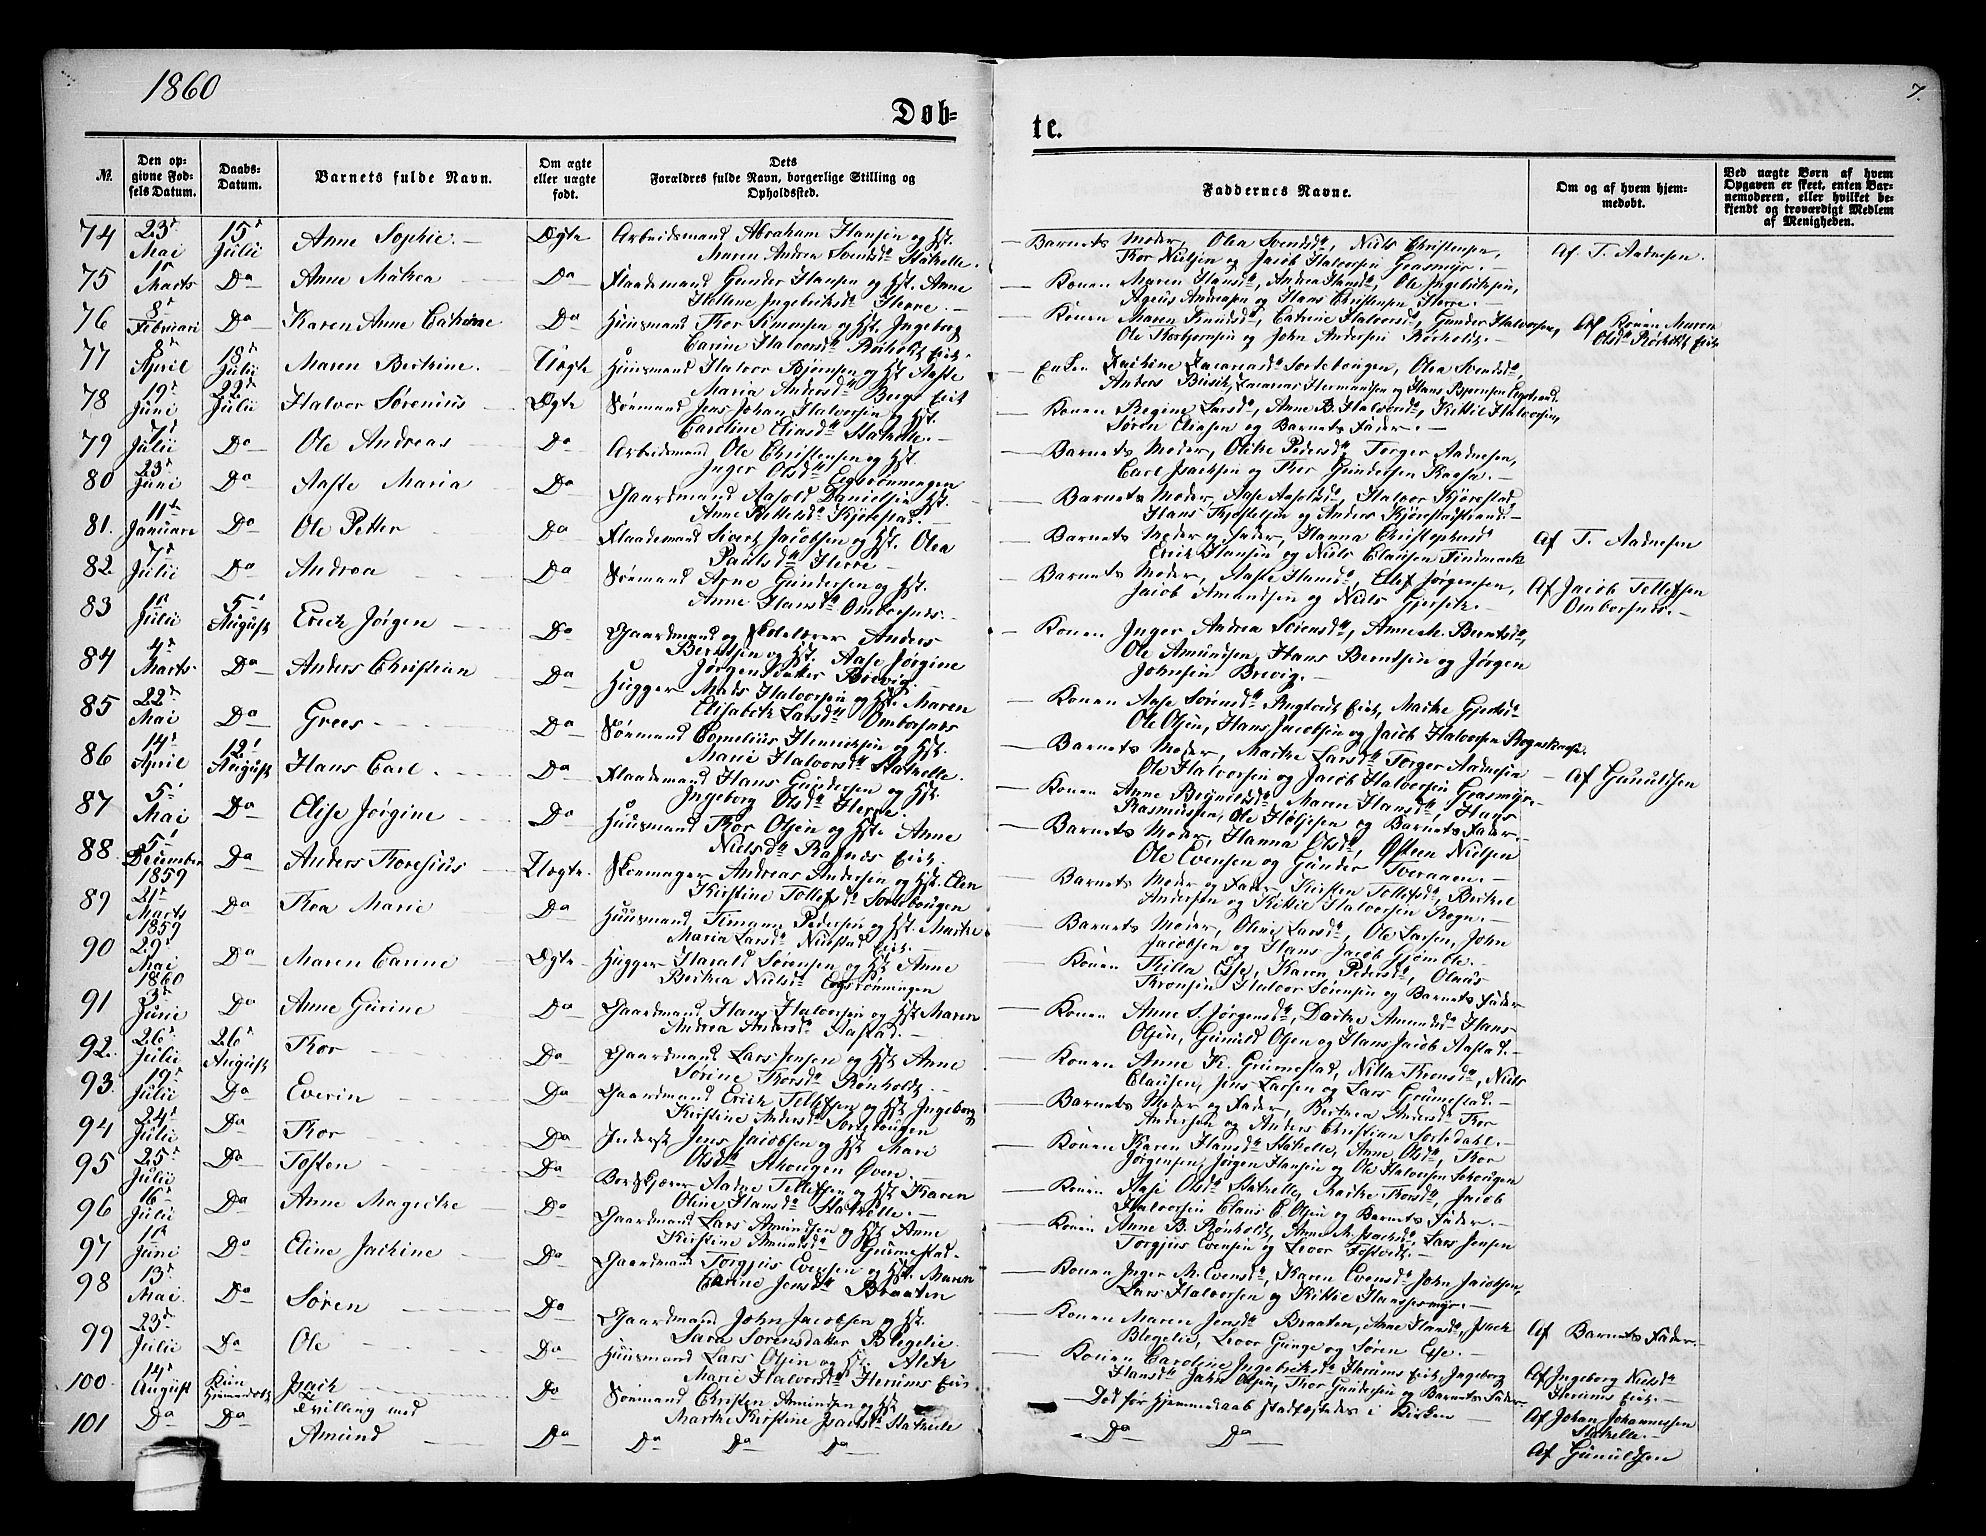 1860
7.
Døb=
te.
№
Den op-
givne Fød-
sels Datum.
Daabs-
Datum.
Barnets fulde Navn.
Om ægte
eller uægte
født.
Dets
Forældres fulde Navn, borgerlige Stilling og
Opholdssted.
Faddernes Navne.
Om og af hvem hjem-
medøbt.
Ved uægte Børn af hvem
Opgaven er skeet, enten Bar-
nemoderen, eller hvilket be-
kjendt og troværdigt Medlem
af Menigheden.
74 23de Mai 15de Julii Anne Sophie. Ægte Arbeidsmand Abraham Hansen og Hst.
Maren Andrea Svendsdr Stathelle.
Barnets Moder, Olea Svendsdr, Niels Christensen,
Thor Nielsen og Jacob Halvorsen Grasmyr.
Af T. Aadnesen.
75 1ste Marts Do Anne Mathea Do Flaademand Gunder Hansen og Hst. Anne
Hellene Ingebrektsdr Herre.
Konen Maren Hansdr, Andrea Hansdr, Ole Ingebrektsen,
Andersen og Hans Christensen Herre.
76 8de Februari Do Karen Anne Cathrine Do Huusmand Thor Simonsen og Hst. Ingeborg
Carine Halvorsdr Rørholt Eiet.
Konen Maren Knudsdr, Catrine Halvorsdr, Gunder Halvorsen,
Ole Thorbjørnsen og John Andersen Rørholt.
Af Konen Maren
Olsdr Rørholt Eiet
77 8de April 18de Julii Maren Bertine. Uægte Huusmand Halvor Bjørnsen og Hst. Aaste
Maria Andersdr Berge Eiet
Enken
78 19de Juni 22de Julii Halvor Sørenius Ægte Sømand Jens Johan Halvorsen og Hst.
Caroline Eliasdr Stathelle.
Konen Regine Larsdr, Anne B. Halvorsdr, Kittil Halvorsen,
Søren Eliasen og Barnets Fader.
79 7de Julii Do Ole Andreas Do Arbeidsmand Ole Christensen og Hst.
Inger Olsdr
Barnets Moder, Olike Pedersdr, Torger Aadnesen,
Carl Isachsen og Thor Gundersen
80 23de Juni Do Aaste Maria Do Gaardmand Aasold Danielsen Hst.
Anne Kittelsdr Kjørestad.
Barnets Moder, Aase Aasoldsdr, Halvor Kjørestad
Hans Kjostelsen og Anders Kjørestadstrand.
81. 11te Januari Do Ole Petter Do Flaademand Sivert Jacobsen og Hst. Olea
Paulsdr Herre
Barnets Moder og Fader, Hanna Christophersdr
Erik Hansen og Niels Clausen Findmark
Af T. Aadnesen
82. 7de Julii Do Andrea Do Sømand Arne Gundersen og Hst.
Anne Hansdr Omborsnes.
Barnets Moder, Aaste Hansdr, Elef Jørgensen,
Jacob Amundsen og Niels
Af Jacob Tellefsen
Omborsnes.
83 1ste Julii 5te August Erich Jørgen Do Gaardmand og Skolelærer Anders
Berntsen og Hst. Aase Jørgine
Jørgensdatter Brevig.
Konen Inger Andrea Sørensdr, Anne M. Berntsdr,
Ole Amundsen, Hans Berntsen og Jørgen
Johnsen Brevig.
84 4de Marts Do Anders Christian Do Hugger Mads Halvorsen og Hst. Maren
Elisabeth Larsdr Omborsnes
Konen Aase Sørensdr
Ole Olsen, Hans Jacobsen og Jacob Halvorsen
85 22de Mai Do Grees Do Sømand Cornelius Henriksen og Hst.
Marie Halvorsdr Stathelle.
Barnets Moder, Marthe Larsdr Torger Aadnesen
Ole Halvorsen og Jacob Halvorsen Grasmyr.
86 14de April 12te August Hans Carl. Do Flaademand Hans Gundersen og Hst.
Ingeborg Olsdr Herre.
Konen Anne Maren Hansdr, Hans
Rasmussen, Ole og Barnets Fader.
Af Gunuldsen
87 5te Mai Do Elise Jørgine Do Huusmand Thor Olsen og Hst. Anne
Nielsdr Rafnes Eiet.
Barnets Moder, Hanna Olsdr, Østen Nielsen
Ole Evensen og Gunder Tveraaen.
88. 5te December 1859 Do Anders Thoresius Uægte. Skomager Andreas Andersen og Hst. Elen
Kirstine Tollefsdr Sortebougen
Barnets Moder og Fader, Kirsten Tollefsdr,
Andersen og Kittil Halvorsen Rogn.
89 21de Marts 1859 Do Thea Marie Do Huusmand Timann Pedersen og Hst. Marthe
Maria Larsdr Eiet.
Barnets Moder, Oline Larsdr, Ole Larsen, John
Jacobsen og Hans Jacob
90 29de Mai 1860 Do Maren Carine Ægte Hugger Harald Sørensen og Hst. Anne
Berthea Nielsdr
Konen Karen Pedersdr, Olaus
Halvor Sørensen og Barnets Fader
91 3de Junii Do Anne Gurine Do Gaardmand Hans Halvorsen og Hst. Maren
Andrea Andersdr Aastad.
Konen Anne S. Jørgensdr, Dorthe Amundsdr Hans
Olsen, Gunuld Olsen og Hans Jacob Aastad.
92. 26de Julii 26de August Thor Do Gaardmand Lars Jensen og Hst. Anne
Sørine Thorsdr Rønholt.
Konen Anne K. Grummestad, Nilla Niels
Clausen, Jens Larsen og Lars Grummestad.
93. 19de Julii Do Everin Do Gaardmand Erich Tellefsen og Hst. Ingeborg
Kirstine Andersdr Sortebougen
Barnets Moder og Fader, Berthea Andersdr Thor
Andersen og Anders Christian Sortedahl.
94 24de Julii Do Thor Do Inderst Jens Jacobsen og Hst. Mari
Olsdr Skougen Øvre.
Konen Karen Hansdr Stathelle, Anne Olsdr, Thor
Jørgensen, Jørgen Hansen og Ole Halvorsen Skougen
95 25de Julii Do Tosten Do Bordskjærer Aadne Tellefsen og Hst. Karen
Oline Hansdr Stathelle.
Konen Aase Olsdr Stathelle, Thorsdr, Jacob
Halvorsen Claus C. Olsen og Barnets Fader.
96 16de Julii Do Anne Magrethe Do Gaardmand Lars Amundsen og Hst. Anne
Kirstine Amundsdr Grumestad.
Konen Anne B. Rønholt, Anne M. Isachsdr, Lars Jensen
Torgjus Evensen og Levor Tostvedt.
97 1ste Juni Do Eline Jachine Do Gaardmand Torgjus Evensen og Hst. Maren
Carine Jensdr Braaten
Konen Inger M. Evensdr, Karen Evensdr John Jacobsen,
Lars Halvorsen og Kittil
98 13de Mai. Do Søren Do Gaardmand John Jacobsen og Hst.
Sara Sørensdatter Blegelie.
Konen Maren Jensdr Braaten, Anne Hansdr, Isach
Blegelie, Levor Gunge og Søren
Af Barnets Fader.
99 23de Julii Do Ole Do Huusmand Lars Olsen og Hst. Aleth
Marie Halvorsdr Herums Eiet
Konen Caroline Ingebrektsdr Herums Eiet, Ingeborg
Hansdr John Olsen, Thor Gundersen og Barnets Fader.
Af Ingeborg Nielsdr
Herums Eiet.
100. 14de August Kun Hjemmedøbt Isach Tvilling med Do Sømand Christen Amundsen og Hst.
Marthe Kirstine Isachsdr Stathelle
Død før Hjemmedaab stadfæstedes i Kirken
Af Johan Johannesen
Stathelle.
101 Do Do Amund Do Do Do Do
Do Do
Af Gunuldsen